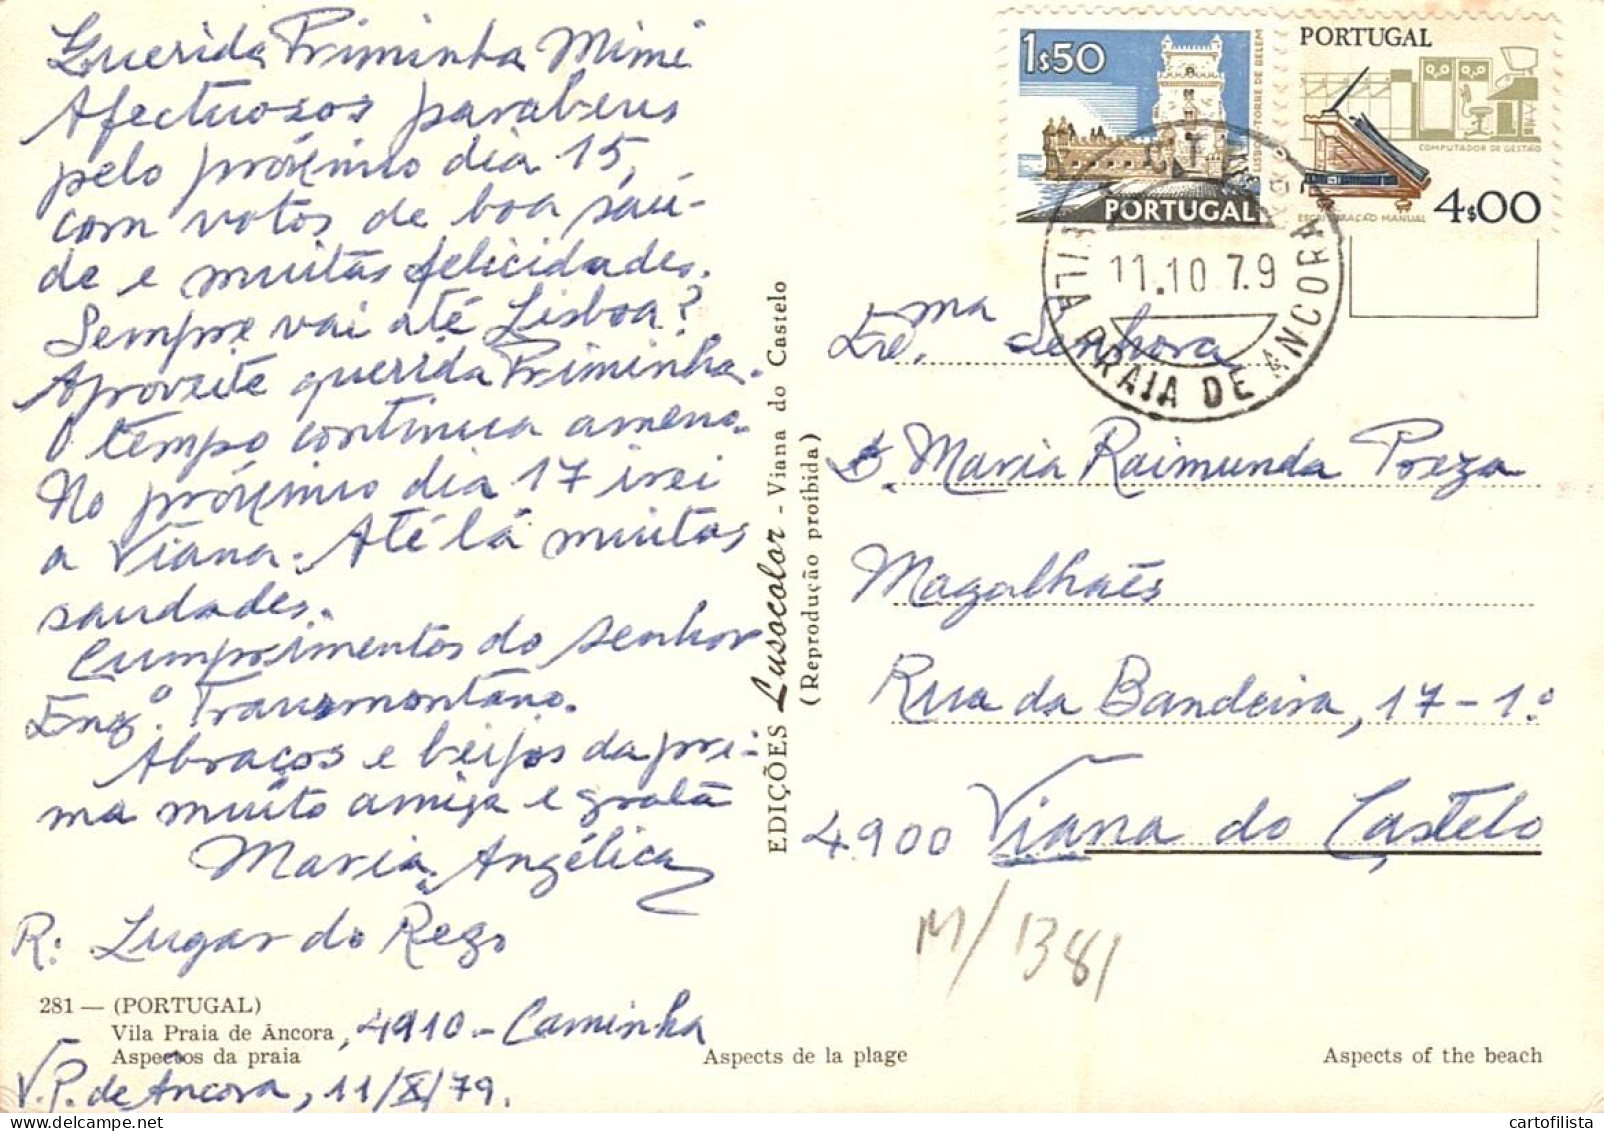 Querida Priminha Mimi
Afectuosos parabens
pelo próximo dia 15,
com votos de boa saú-
de e muitas felicidades.
Sempre vai até Lisboa?
Aproveite querida Priminha.
O tempo continua ameno.
No próximo dia 17 irei
a Viana. Até lá muitas
saudades.
Cumprimentos do senhor
Engº. Transmontano.
Abraços e beijos da pri-
ma muito amiga e grata
Maria Angélica
R: Lugar do Rego
281 — (PORTUGAL)
Vila Praia de Âncora, 4910 - Caminha
Aspectos da praia
V. P. de Âncora, 11/X/79.
Aspects de la plage
Aspects of the beach
EDIÇÕES Lusocolor - Viana do Castelo
(Reprodução proíbida)
1$50
LISBOA TORRE DE BELEM
PORTUGAL
PORTUGAL
COMPUTADOR DE GESTÃO
ESCRITURAÇÃO MANUAL
4$00
C.T.T.
11.10.79
VILA PRAIA DE ANCORA
Exma Senhora
D. Maria Raimunda Poeza
Magalhães
Rua da Bandeira, 17-1.º
4900 Viana do Castelo
M/1381
cartofilista